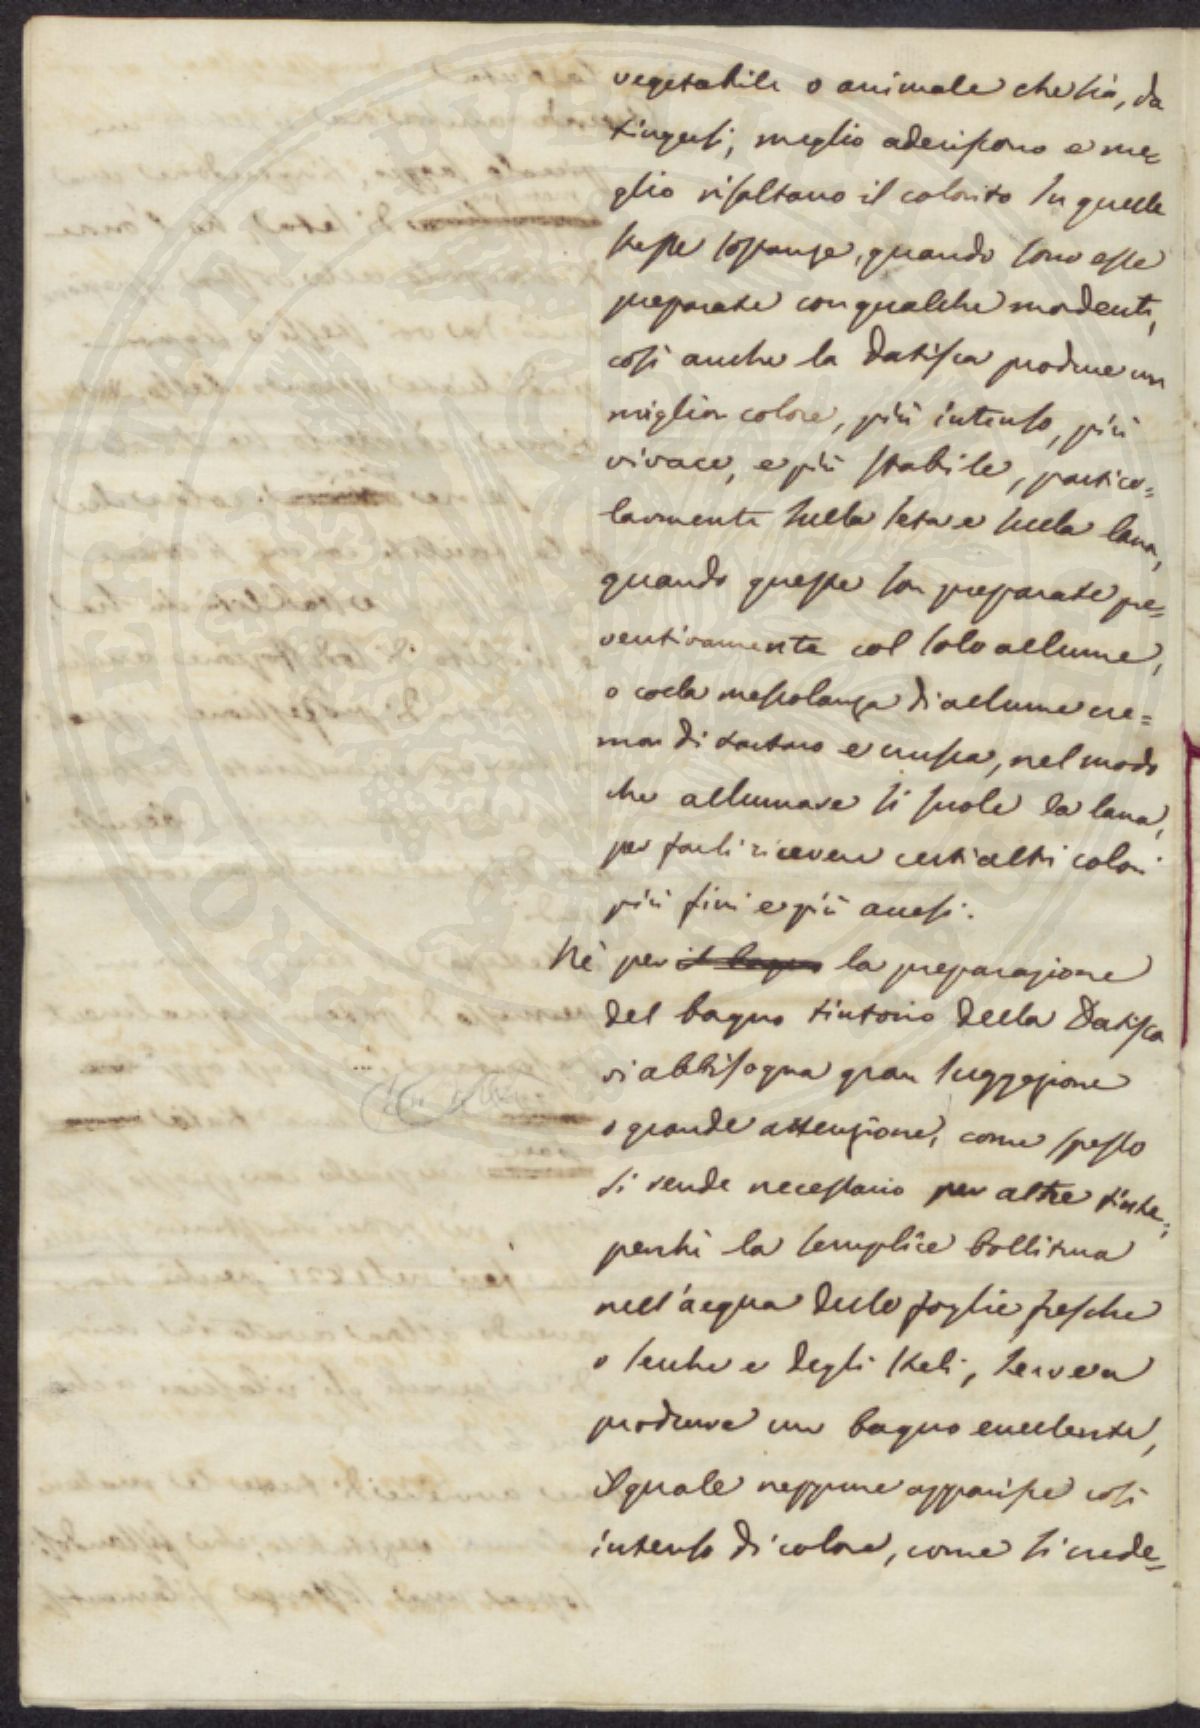 vegetabile o animale che sia, da
tingersi, meglio aderiscono e me=
glio risaltano il colorito su quelle
stesse sostanze, quando sono esse
preparate con qualche mordente,
così anche la Datisca produce un
miglior colore, più intenso, più
vivace, e più stabile, partico=
larmente sulla seta e sulla lana,
quando queste son preparate pre=
ventivamente col solo allume,
o colla mescolanza di allume cre=
mor di tartaro e crusca, nel modo
che allumare si suole la lana,
per farli ricevere certi altri colori
più fini e più accesi.
Nè per il bagno la preparazione
del bagno tintorio della Datisca
vi abbisogna gran suggezione
o grande attenzione, come spesso
si rende necessario per altre tinte;
perchè la semplice bollitura
nell'acqua delle foglie fresche
o secche e degli steli, serve a
produrre un bagno eccellente,
il quale neppure apparisce così
intenso di colore, come si crede=